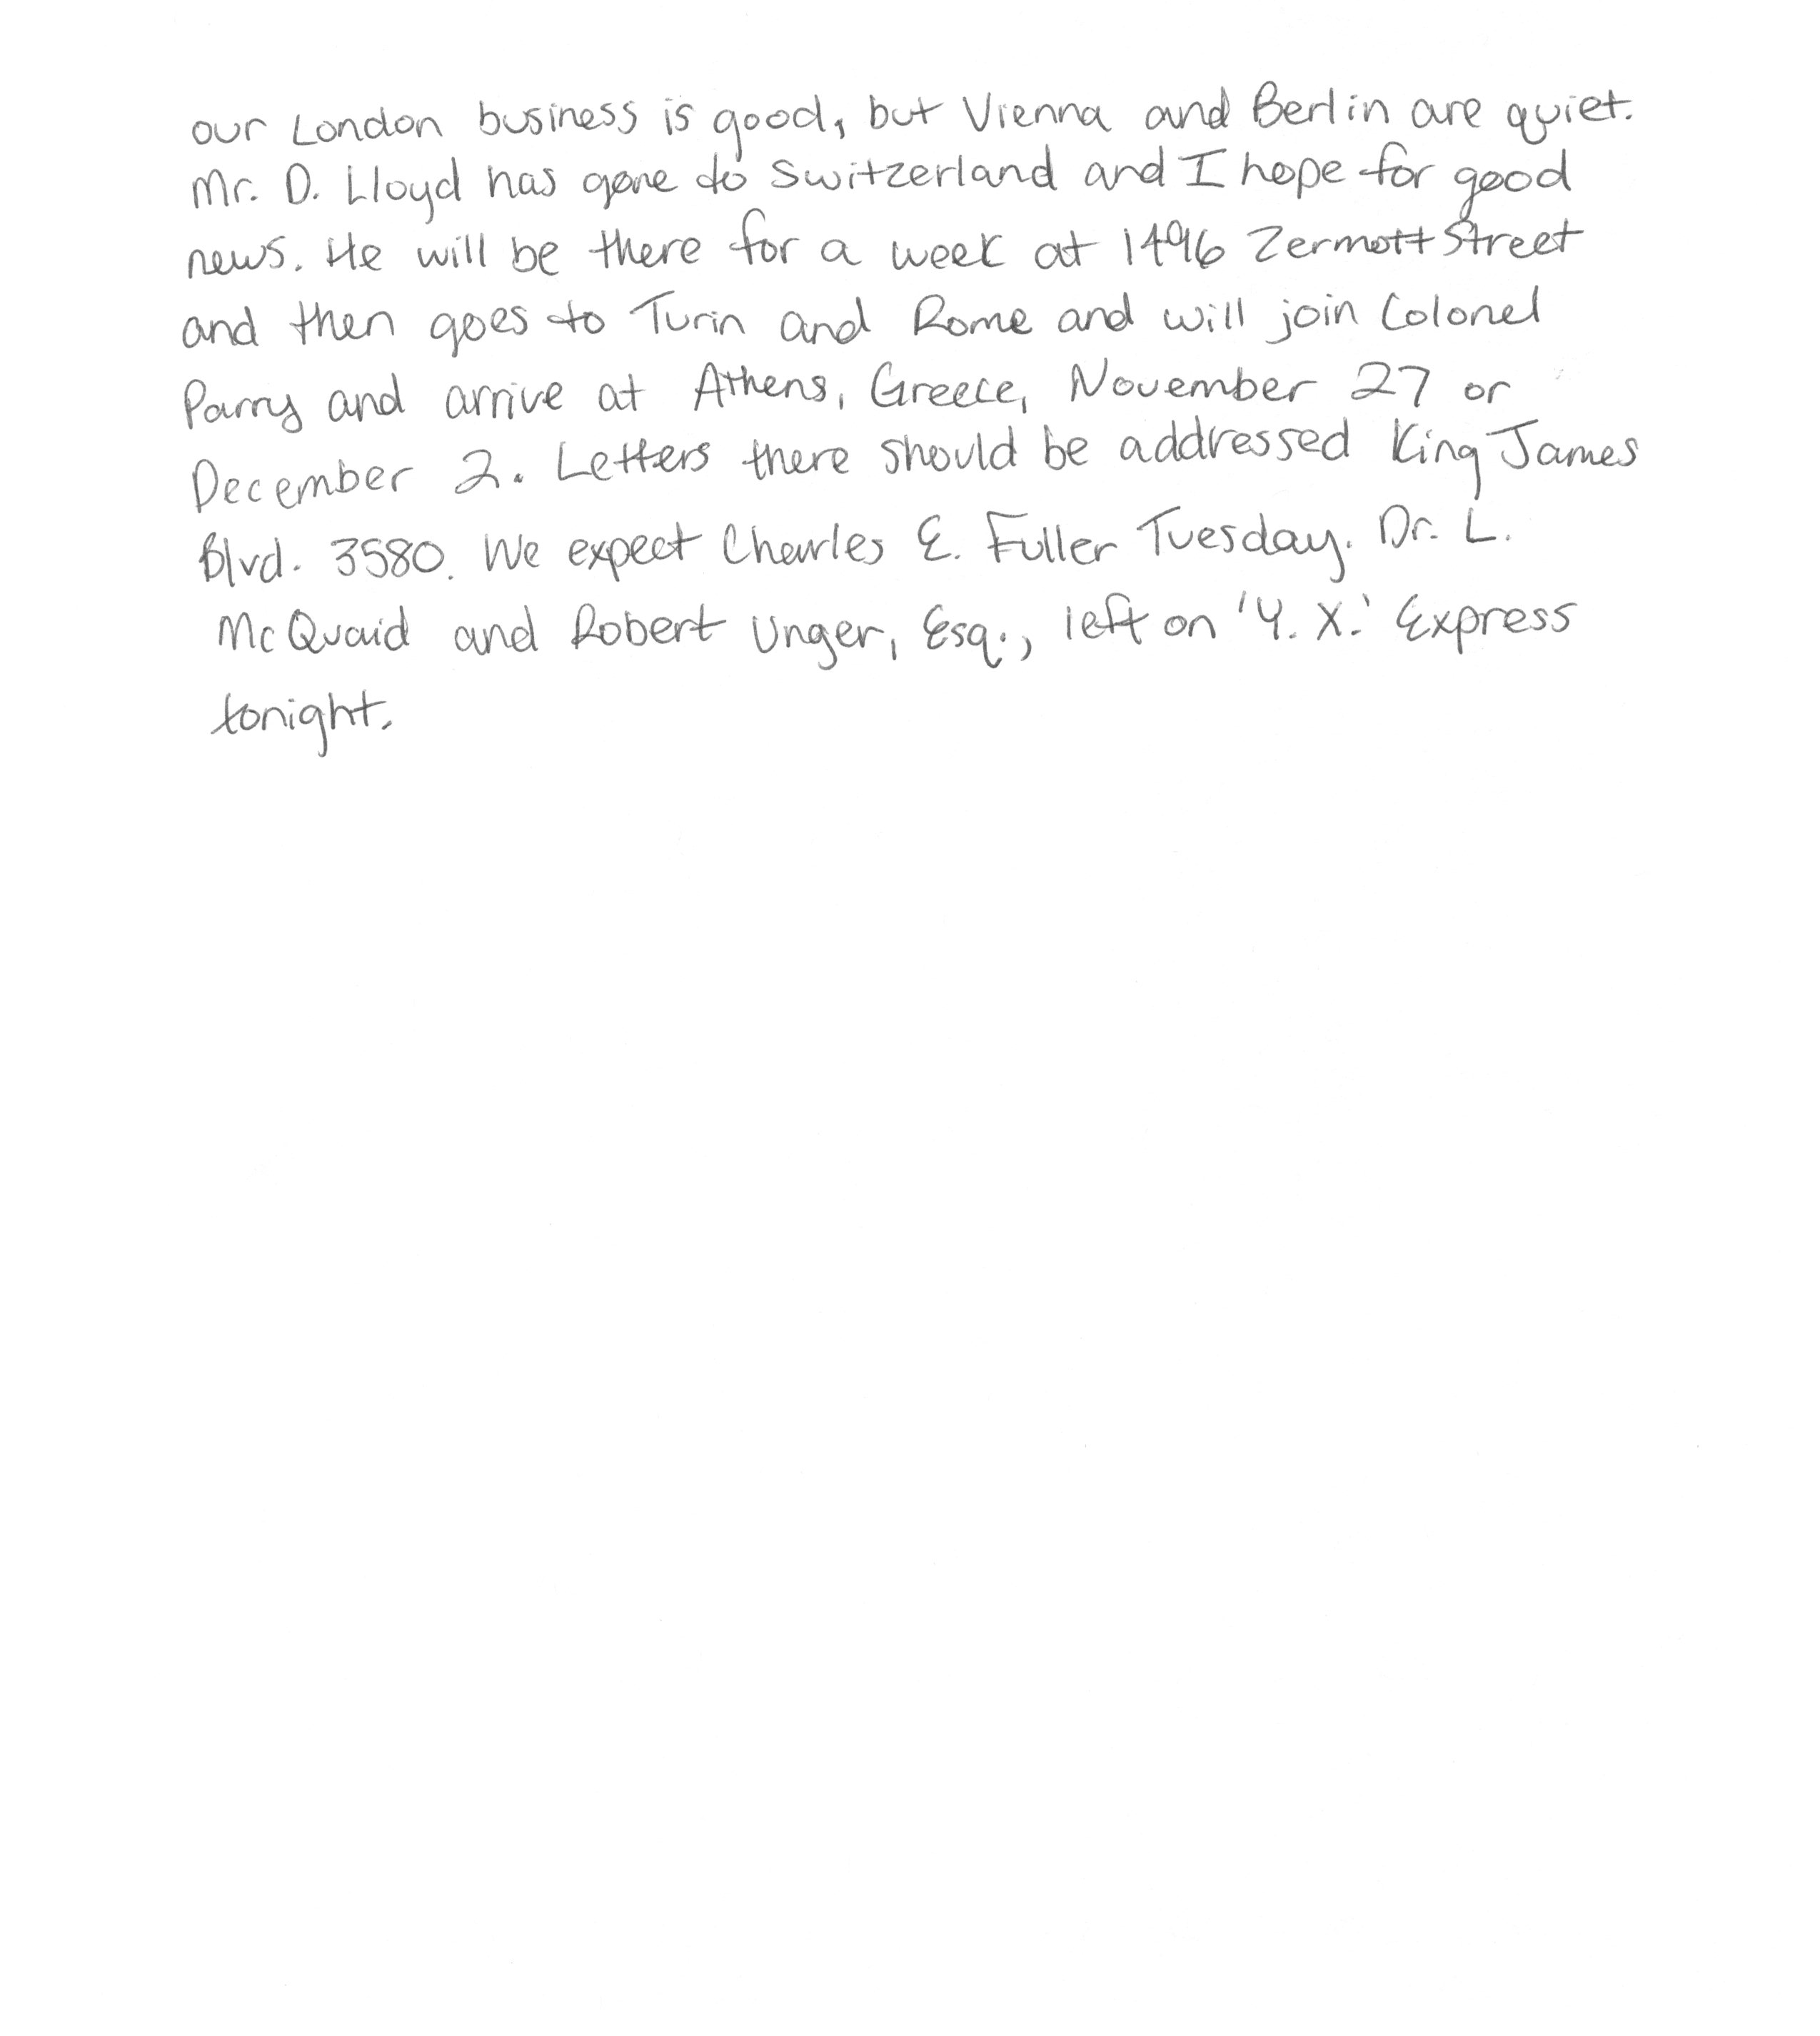 our London business is good, but Vienna and Berlin are quiet.
Mr. D. Lloyd has gone to Switzerland and I hope for good
news. He will be there for a week at 1496 Zermott Street
and then goes to Turin and Rome and will join Colonel
Parry and arrive at Athens, Greece, November 27 or
December 2. Letters there should be addressed King James
Blvd. 3580. We expect Charles E. Fuller Tuesday. Dr. L.
McQuaid and Robert Unger, Esq., left on 'Y. X.' Express
tonight.